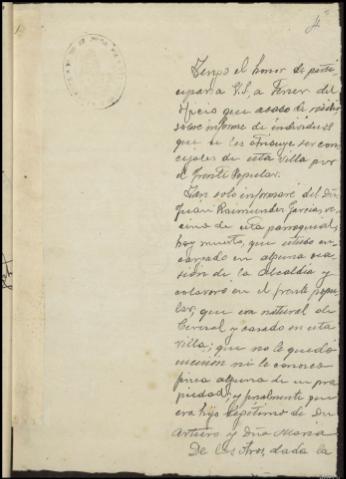 Tengo el honor de parti-
cipar a V.S. a Tenor del
oficio que acabo de recibir
sobre informe de individual
que se les atribuye ser con-
cejales de esta villa por
el Frente Popular.
Tan solo informaré del Dn
Juan Raimundez García, ve-
cino de esta parroquia,
hoy muerto, que estubo en-
cargado en alguna oca-
sión de la Alcaldía y
colaboró en el frente popu-
lar, que era natural de
y casado en esta
villa; que no le quedó
ni le conoce
finca alguna de su pro-
piedad, y finalmente que
era hijo legítimo de Dn
Arturo y Dña María
De los otros, dada la